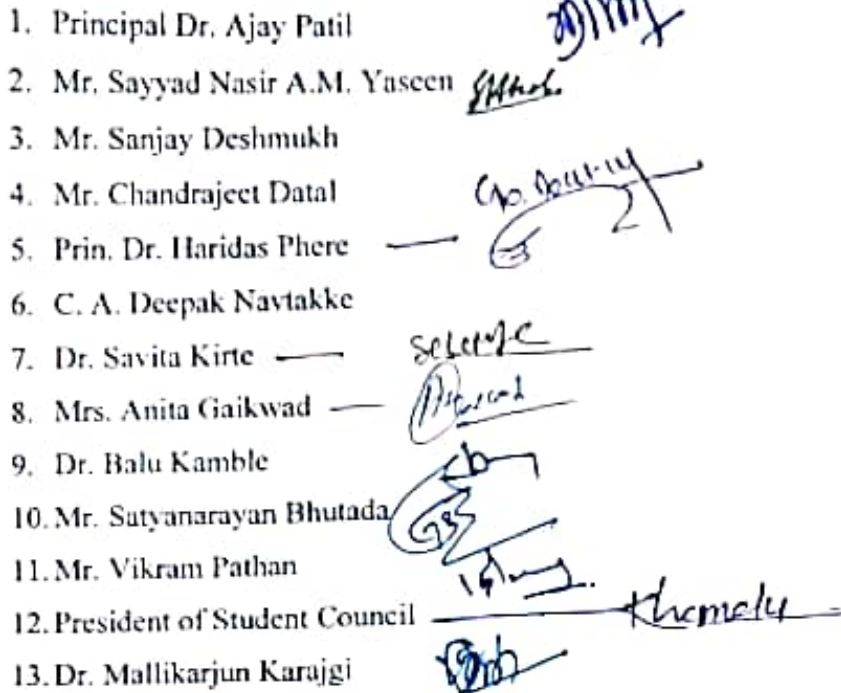 1. Principal Dr. Ajay Patil
2. Mr. Sayyad Nasir A.M. Yaseen
3. Mr. Sanjay Deshmukh
4. Mr. Chandrajeet Datal
5. Prin. Dr. Haridas Phere
6. C. A. Deepak Navtakke
7. Dr. Savita Kirte
8. Mrs. Anita Gaikwad
9. Dr. Balu Kamble
10. Mr. Satyanarayan Bhutada
11. Mr. Vikram Pathan
12. President of Student Council
13. Dr. Mallikarjun Karajgi